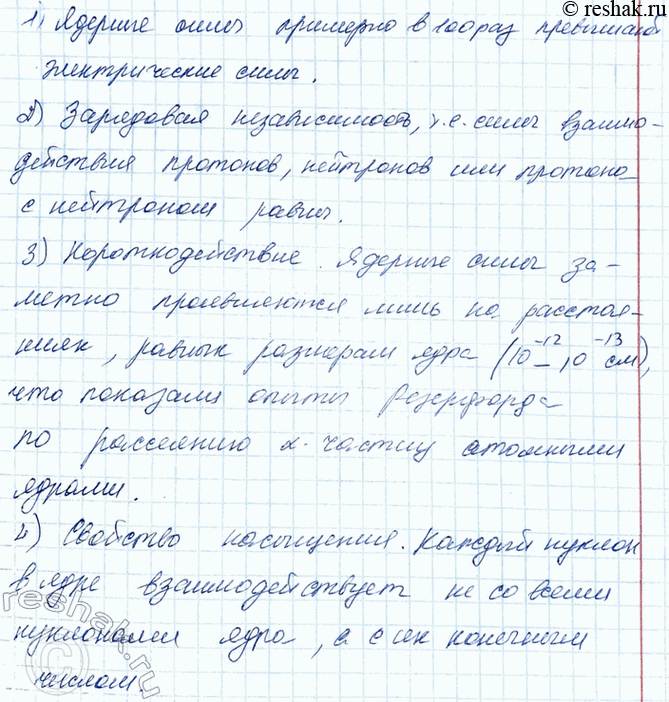 © reshak.ru
1) Ядерные силы примерно в 100 раз превышают
электрические силы.
2) Зарядовая независимость, т.е. силы взаимо-
действия протонов, нейтронов или протона
с нейтроном равны.
3) Короткодействие. Ядерные силы за-
метно проявляются лишь на расстоя-
ниях, равных размерам ядра (10⁻¹² – 10⁻¹³ см),
что показали опыты Резерфорда
по рассеянию α-частиц атомными
ядрами.
4) Свойство насыщения. Каждый нуклон
в ядре взаимодействует не со всеми
нуклонами ядра, а с их конечным
числом.
reshak.ru
©